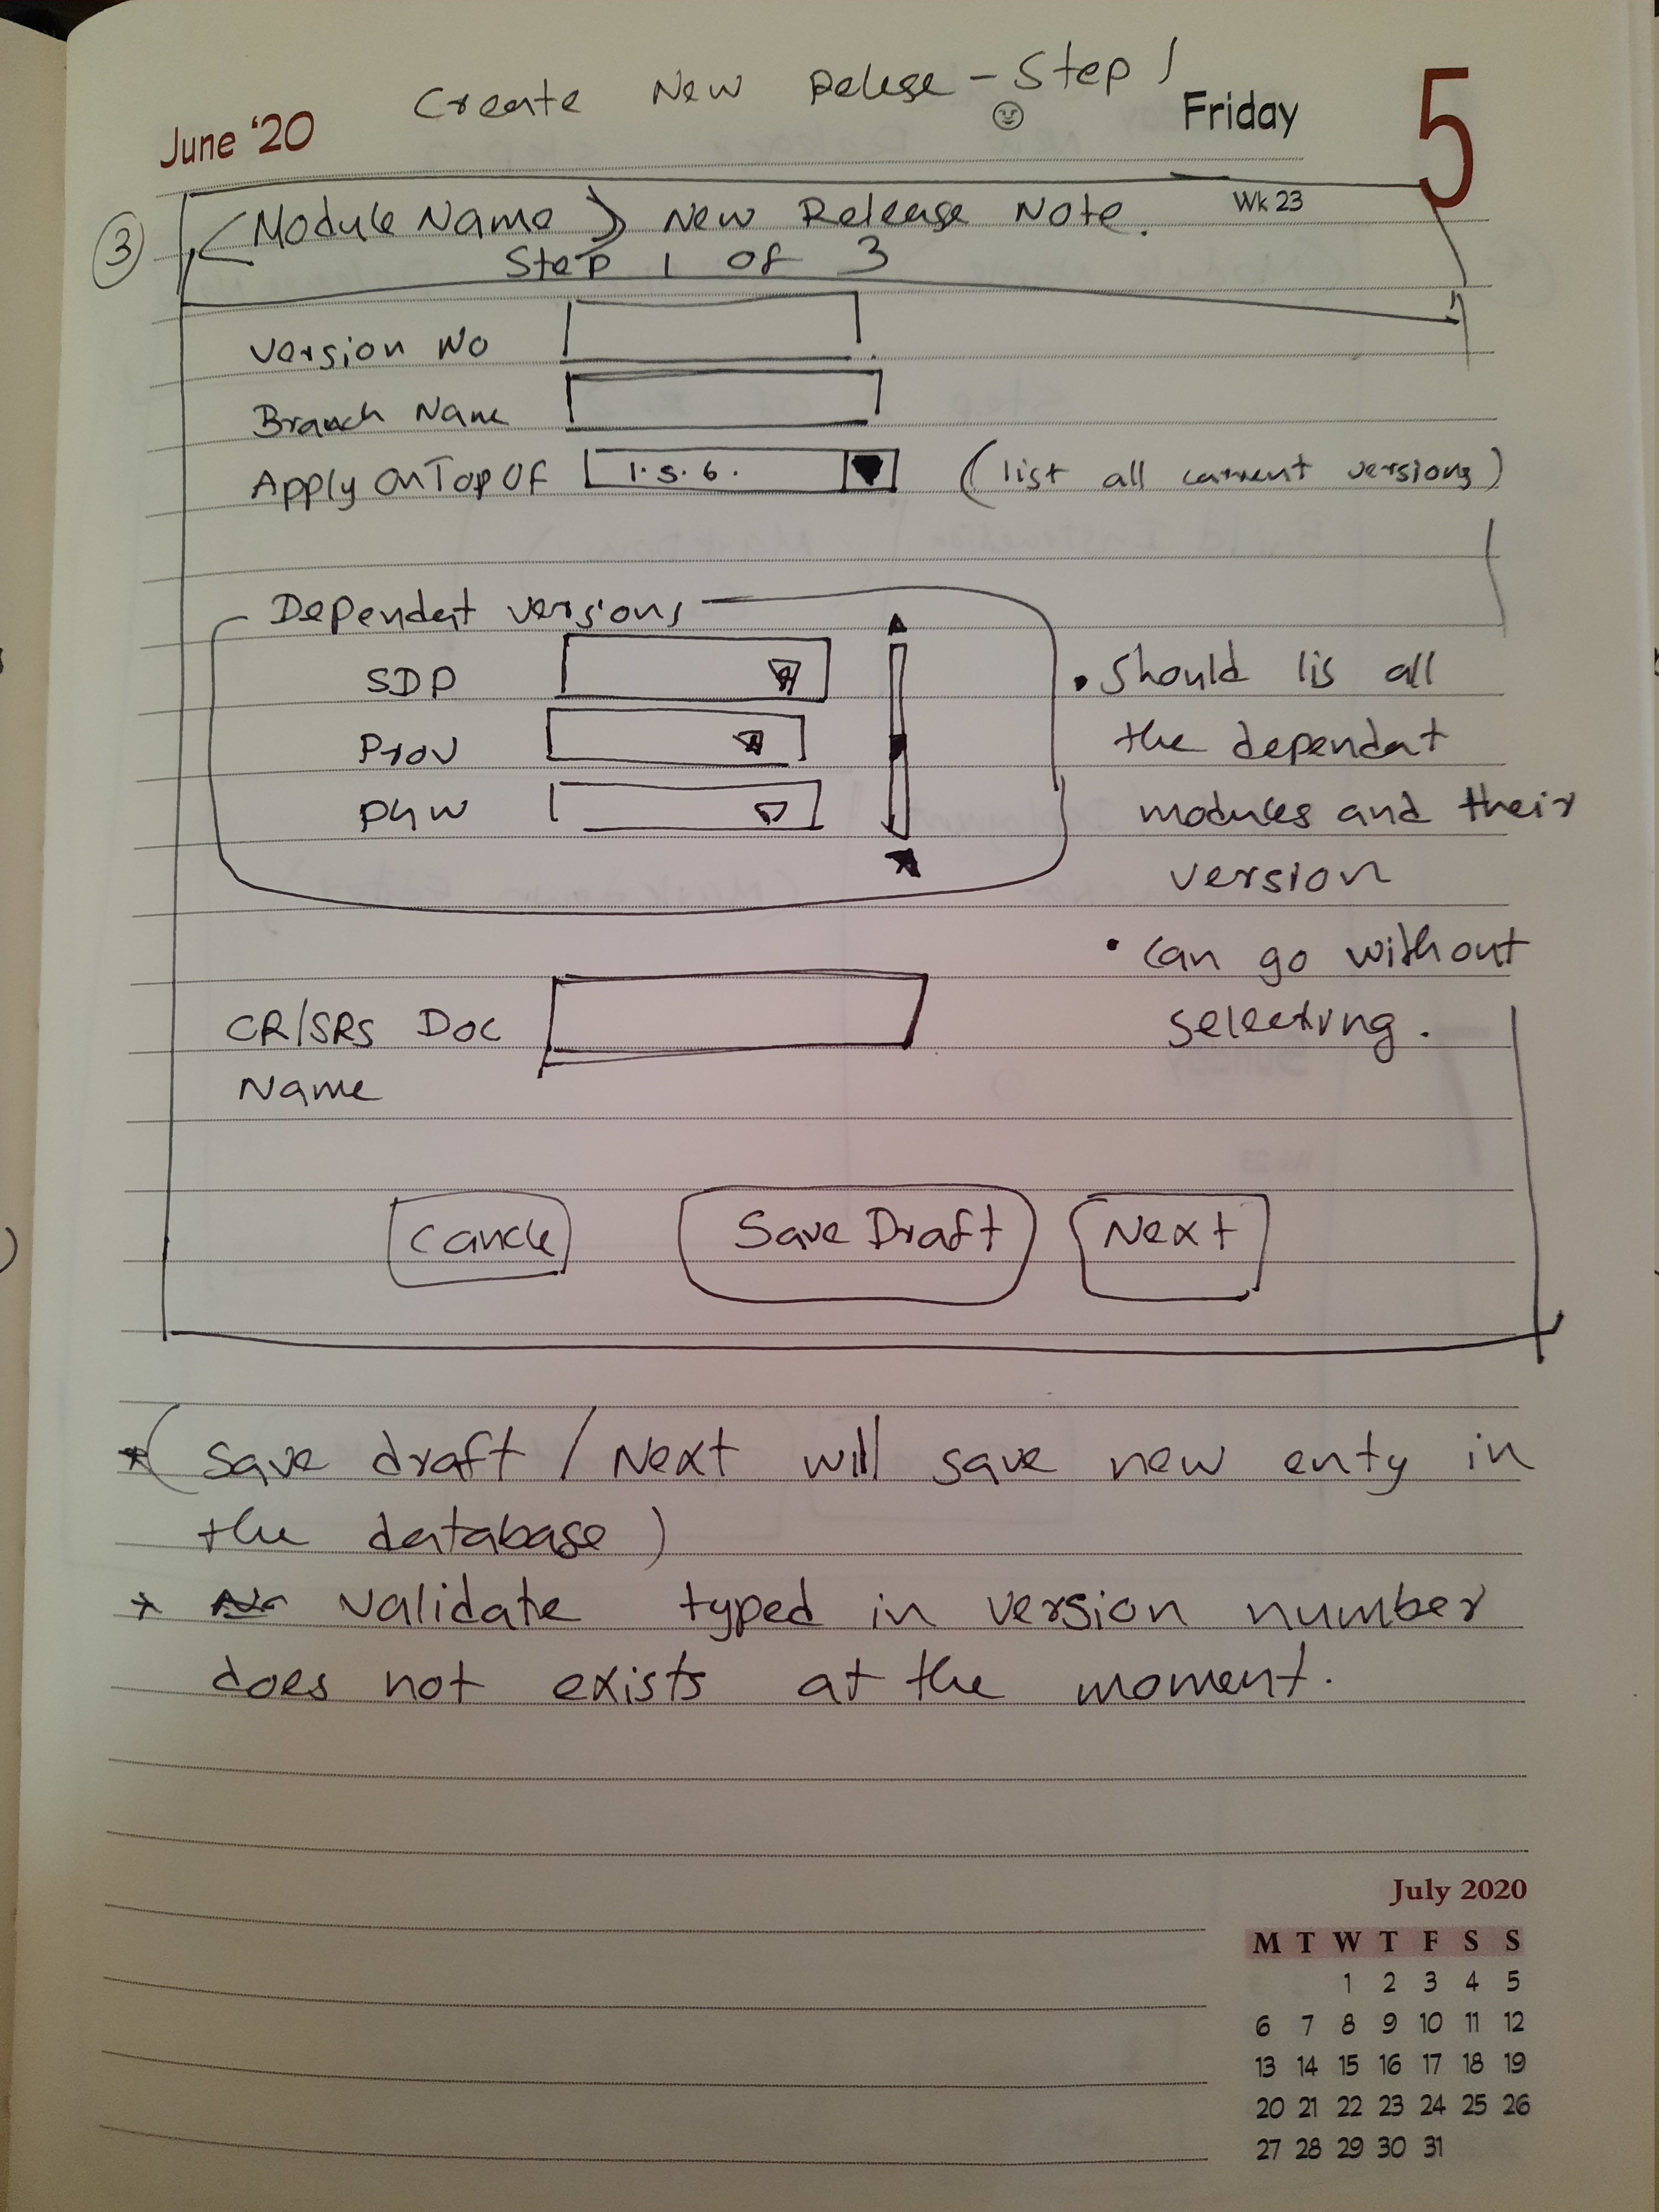 Create New Relese - Step 1
June '20
Friday
5
Wk 23
3
<Module Name> New Release Note.
Step 1 of 3
Version No
Branch Name
Apply OnTop Of 1.5.6. (list all current versions)
Dependent versions
SDP
Prov
PGW
• Should lis all
the dependat
modules and their
version
• can go without
selecting.
CR/SRS Doc
Name
Cancle
Save Draft
Next
* (Save draft / Next will save new enty in
the database)
* validate typed in version number
does not exists at the moment.
July 2020
M T W T F S S
1 2 3 4 5
6 7 8 9 10 11 12
13 14 15 16 17 18 19
20 21 22 23 24 25 26
27 28 29 30 31